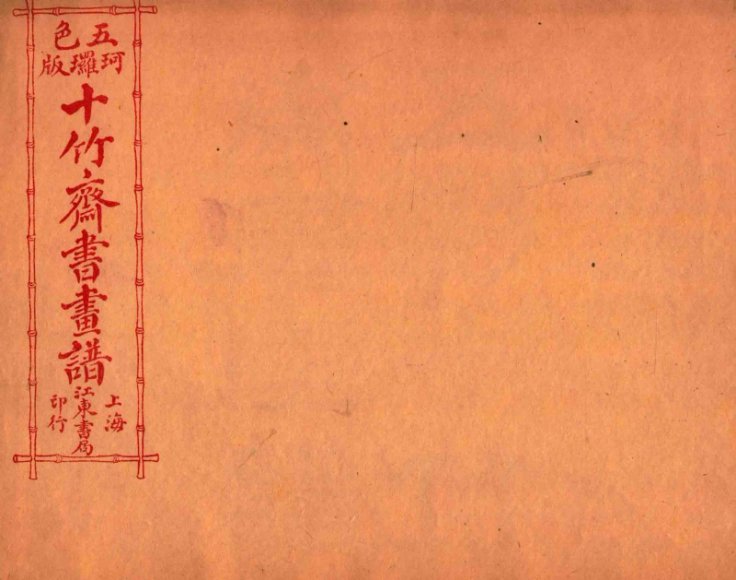 五色
珂㼈版
十竹齋書畫譜
上海
江東書局
印行